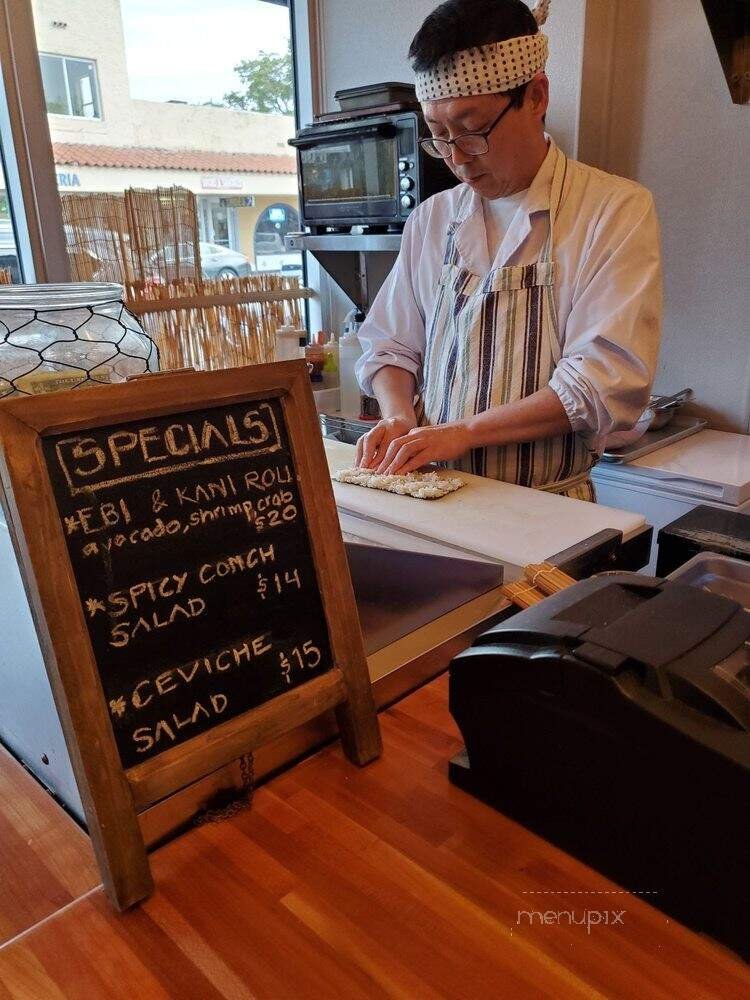 SPECIALS
*EBI & KANI ROLL
avocado, shrimp, crab
$20
*SPICY CONCH
SALAD $14
*CEVICHE
SALAD $15
RIA
menupix